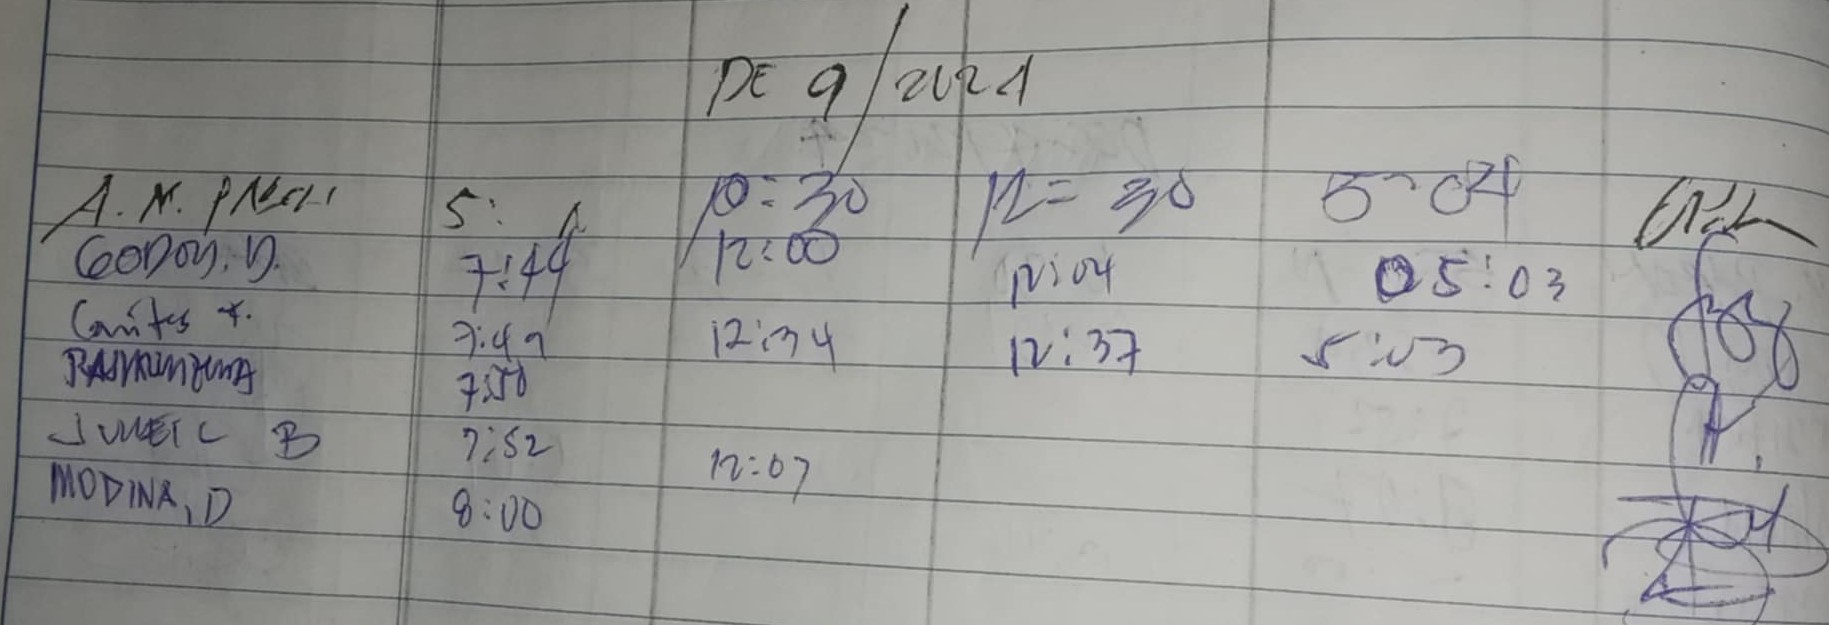 DE 9/2024
A. M. 5: 10:30 12=30 5-04
GODOY, D. 7:44 12:00 12:04 05:03
7:49 12:34 12:37 5:03
7:50
B 7:52 12:07
MODINA, D 8:00